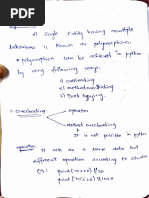 Single entity having multiple
behaviours is known as polymorphism.
* polymorphism can be achieved in python
by using following ways:
1) overloading
2) method overriding
3) Duck typing.
overloading: operator
method overloading
It is not possible in python
operator:
It acts as a same data but
different operation according to
print(10+20) //30